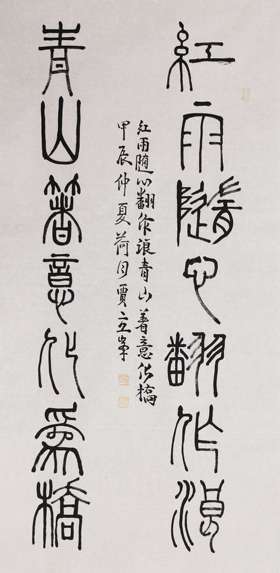 紅雨隨心翻作浪
紅雨隨心翻作浪青山著意化橋
甲辰仲夏荷月賈立
青山著意化為橋